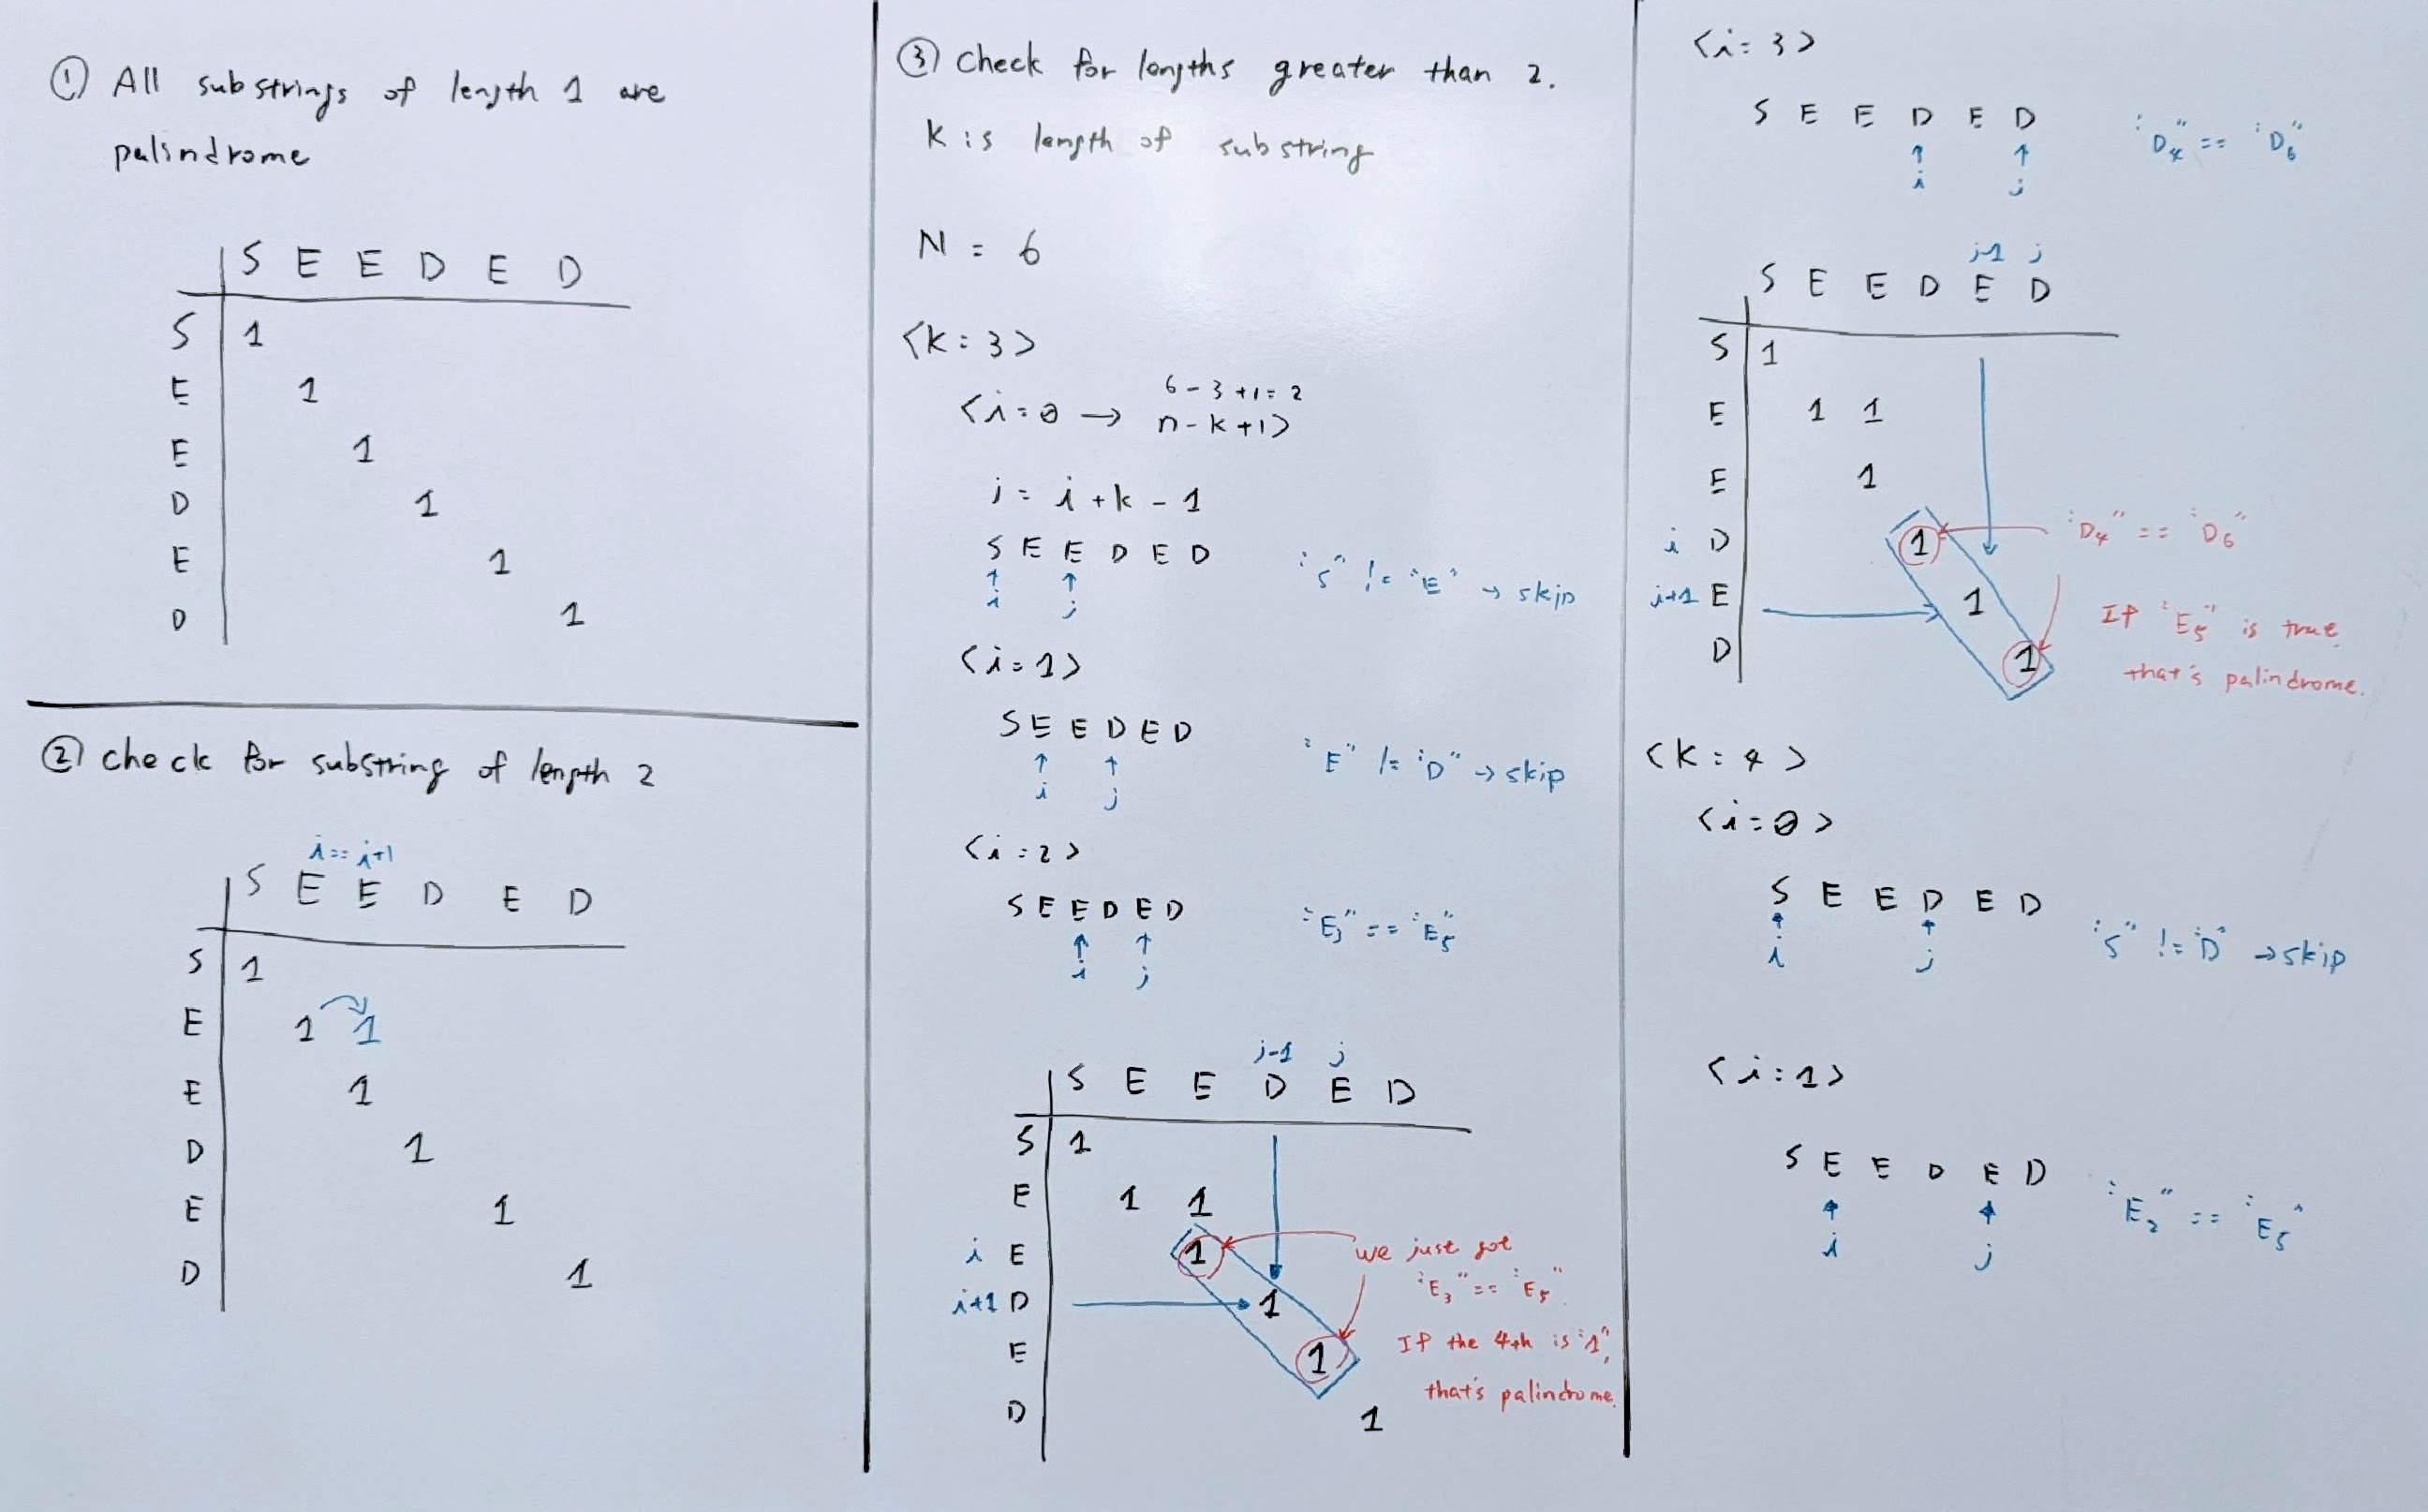 ① All substrings of length 1 are
palindrome
S E E D E D
S 1
E 1
E 1
D 1
E 1
D 1
② check for substring of length 2
i == i+1
S E E D E D
S 1
E 1 1
E 1
D 1
E 1
D 1
③ Check for lengths greater than 2.
k is length of substring
N = 6
<k = 3>
6 - 3 + 1 = 2
<i = 0 → n - k + 1>
j = i + k - 1
S E E D E D
"S" != "E" → skip
i j
<i = 1>
S E E D E D
"E" != "D" → skip
i j
<i = 2>
S E E D E D
"E3" == "E5"
i j
j-1 j
S E E D E D
S 1
E 1 1
i E 1 we just got
"E3" == "E5"
i+1 D 1
If the 4th is "1",
E 1
that's palindrome.
D 1
<i = 3>
S E E D E D
"D4" == "D6"
i j
j-1 j
S E E D E D
S 1
E 1 1
E 1
i D 1 "D4" == "D6"
i+1 E 1 If "E5" is true
D 1 that's palindrome.
<k = 4>
<i = 0>
S E E D E D
"S" != "D" → skip
i j
<i = 1>
S E E D E D
"E2" == "E5"
i j